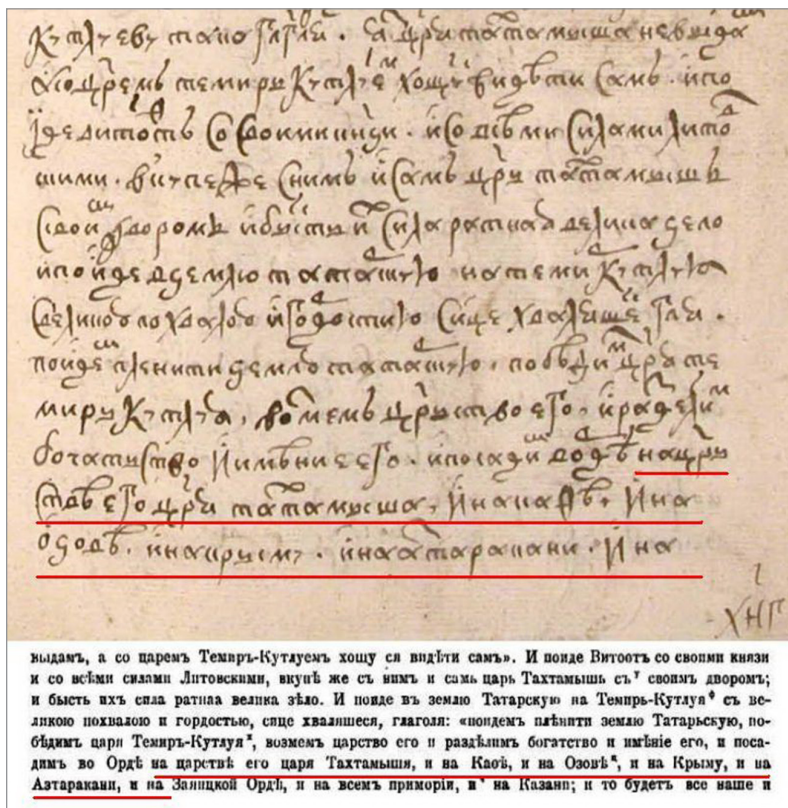 Кꙋтлꙋевꙋ тако глгля. а цря тахтамыша не выда
а со цремъ темиръ Кꙋтлꙋе хощꙋ видѣти самъ. и по
иде витовтъ со своими кнзи. и со всѣми силами лито
скими. вкꙋпе же с нимъ и самъ црь тахтамышъ
своим двором и бысть их сила ратная велика зело
и поиде в землю татарскꙋю на темир Кꙋтлꙋя
с великою похвалою и гордостию сице хвалящеся гля.
поидем пленити землю татарскꙋю. побѣдим цря те
миръ Кꙋтлꙋя, возмемъ црьство его. и разделим
богатьство и имѣние его. и посадим во ордѣ на црь
ствѣ его цря тахтамыша, и на каѳѣ. и на
озовѣ. и на крымꙋ. и на азтаракани. и на
хнг
выдамъ, а со царемъ Темиръ-Кутлуемъ хощу ся видѣти самъ». И поиде Витоотъ со своими князи
и со всѣми силами Литовскими, вкупѣ же съ нимъ и самъ царь Тахтамышь съᵞ своимъ дворомъ;
и бысть ихъ сила ратнаа велика зѣло. И поиде въ землю Татарскую на Темирь-Кутлуяᶲ съ ве-
ликою похвалою и гордостью, сице хвалящеся, глаголя: «поидемъ плѣнити землю Татарьскую, по-
бѣдимъ царя Темиръ-Кутлуяˣ, возмемъ царство его и раздѣлимъ богатство и имѣніе его, и поса-
димъ во Ордѣ на царствѣ его царя Тахтамышя, и на Каѳѣ, и на Озовѣ, и на Крыму, и на
Азтаракани, и на Заяицкой Ордѣ, и на всемъ приморіи, и на Казани; и то будетъ все наше и